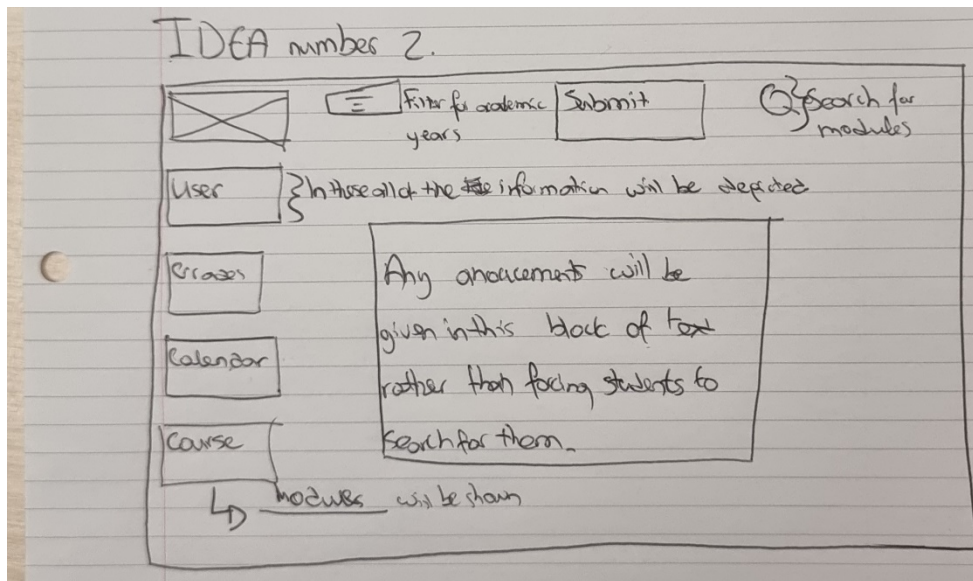 IDEA number 2.
Filter for academic
years
Submit
Search for
modules
User
In those all of the information will be depicted
Calendar
Course
Any anoucements will be
given in this block of text
rather than forcing students to
search for them.
modules will be shown